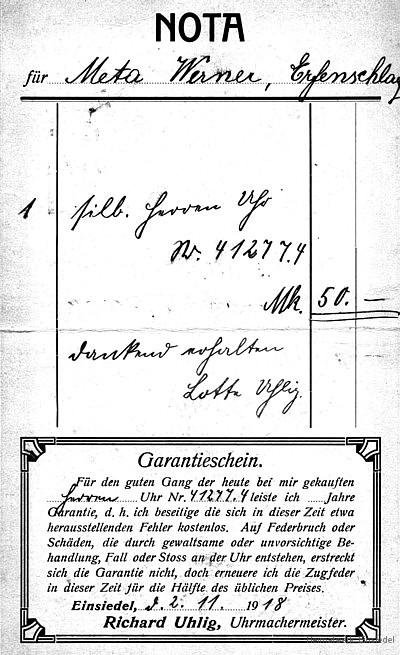 NOTA
für Meta Werner, Erfenschlag
1 silb. Herren Uhr
Nr. 41277.4
Mk. 50. —
dankend erhalten
Lotte Uhlig.
Garantieschein.
Für den guten Gang der heute bei mir gekauften
Herren Uhr Nr. 41277.4 leiste ich ...... Jahre
Garantie, d. h. ich beseitige die sich in dieser Zeit etwa
herausstellenden Fehler kostenlos. Auf Federbruch oder
Schäden, die durch gewaltsame oder unvorsichtige Be-
handlung, Fall oder Stoss an der Uhr entstehen, erstreckt
sich die Garantie nicht, doch erneuere ich die Zugfeder
in dieser Zeit für die Hälfte des üblichen Preises.
Einsiedel, d. 2. 11. 1918
Richard Uhlig, Uhrmachermeister.